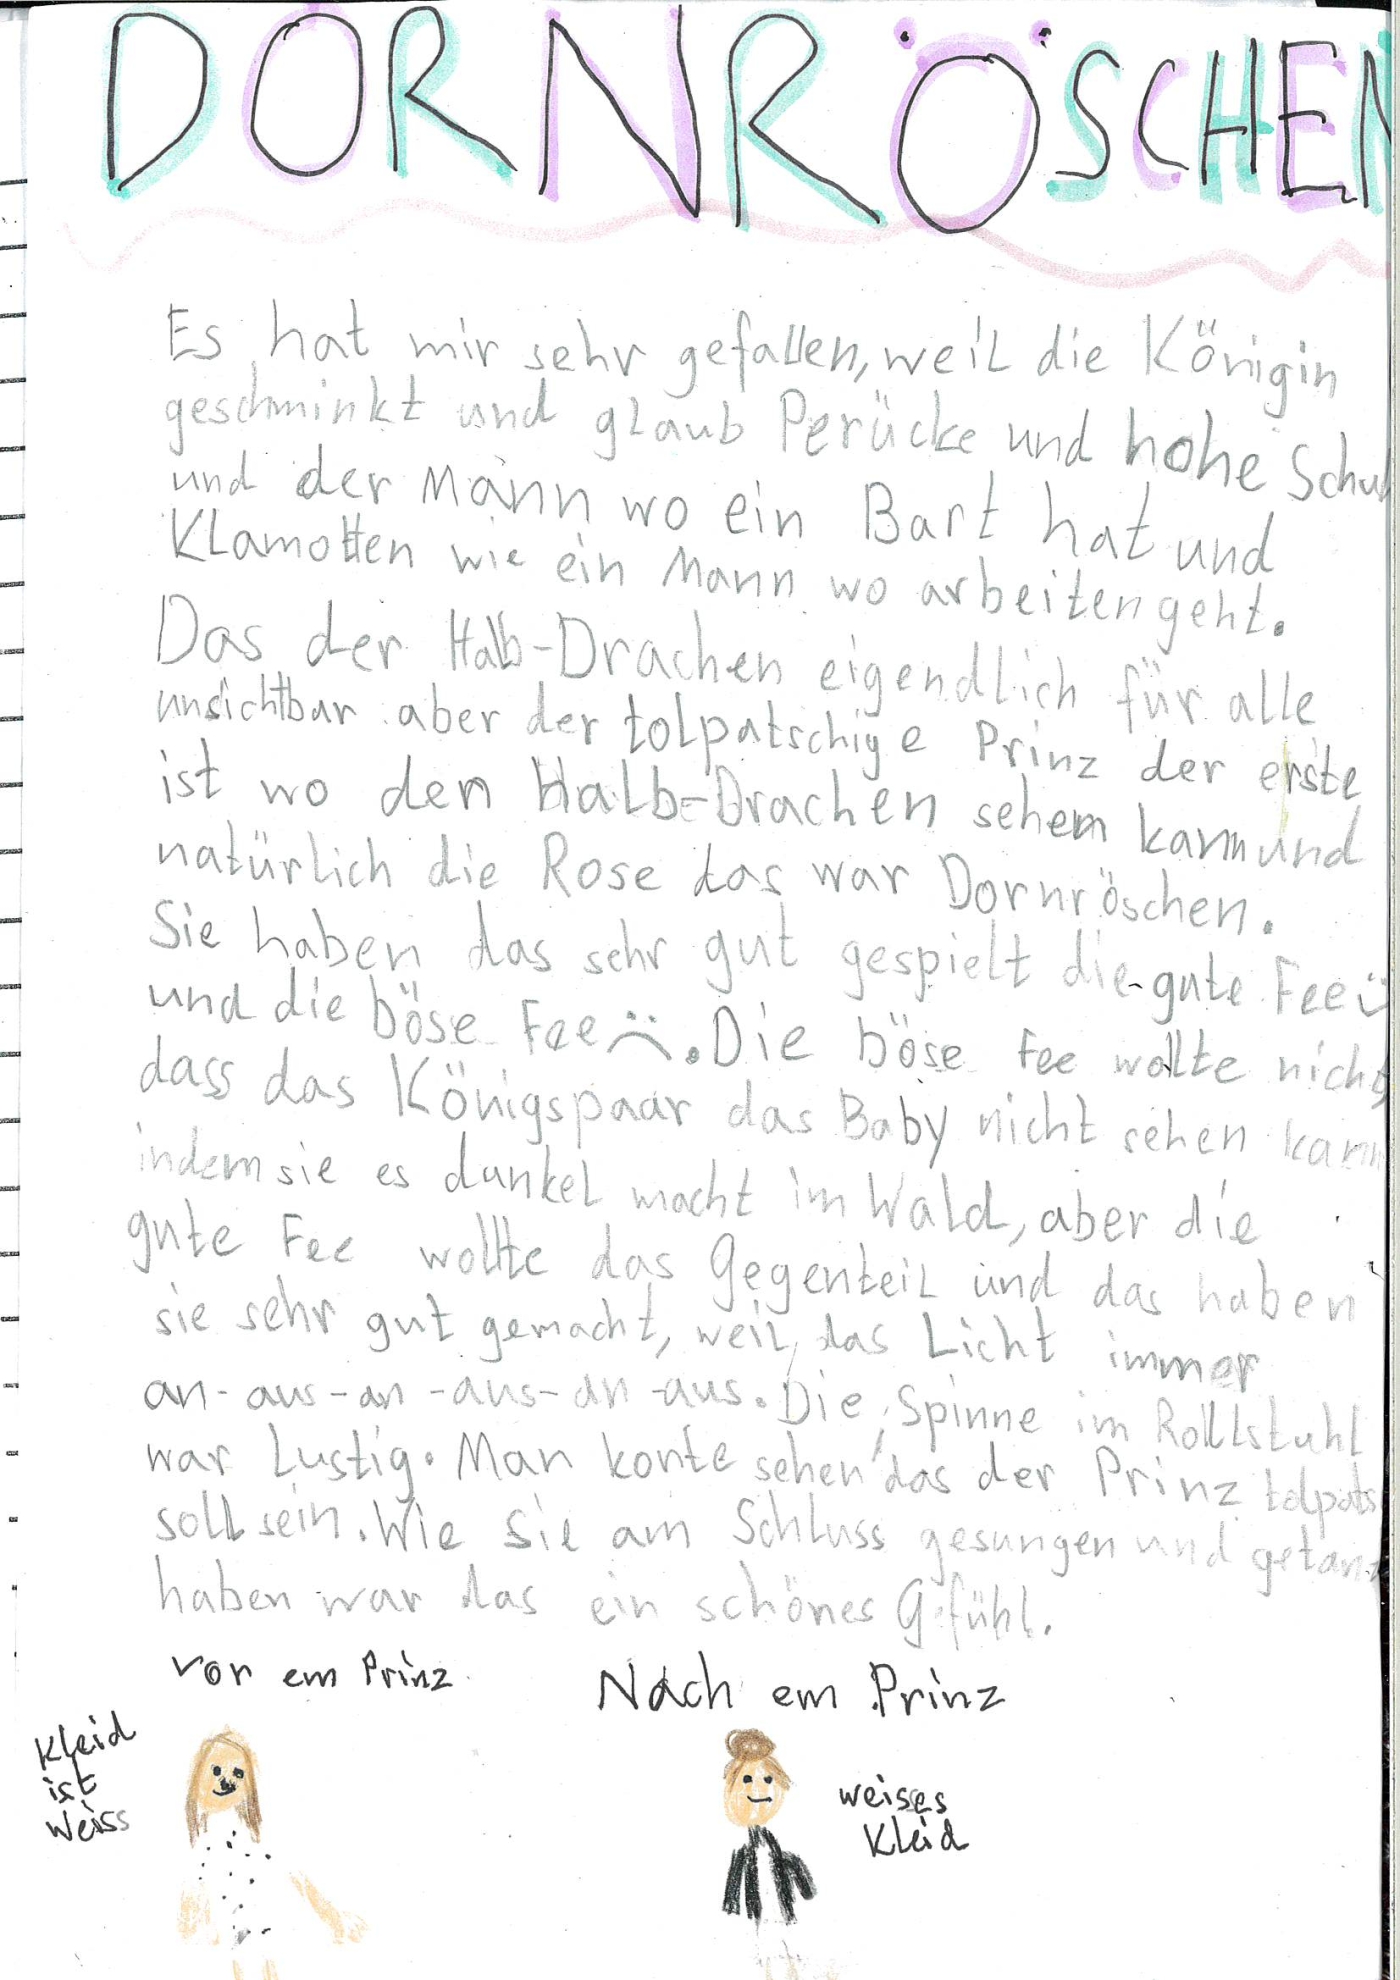 DORNRÖSCHEN
Es hat mir sehr gefallen, weil die Königin
geschminkt und glaub Perücke und hohe Schuh
und der Mann wo ein Bart hat und
Klamotten wie ein Mann wo arbeiten geht.
Das der Halb-Drachen eigendlich für alle
unsichtbar aber der tolpatschige Prinz der erste
ist wo den Halb-Drachen sehem kann und
natürlich die Rose das war Dornröschen.
Sie haben das sehr gut gespielt die gute Fee
und die böse Fee. Die böse Fee wollte nicht,
dass das Königspaar das Baby nicht sehen kann
indem sie es dunkel macht im Wald, aber die
gute Fee wollte das Gegenteil und das haben
sie sehr gut gemacht, weil das Licht immer
an-aus-an-aus-an-aus. Die Spinne im Rollstuhl
war Lustig. Man konte sehen das der Prinz tolpats
soll sein. Wie sie am Schluss gesungen und getanz
haben war das ein schönes Gefühl.
vor em Prinz
Nach em Prinz
Kleid
ist
Weiss
weises
Kleid